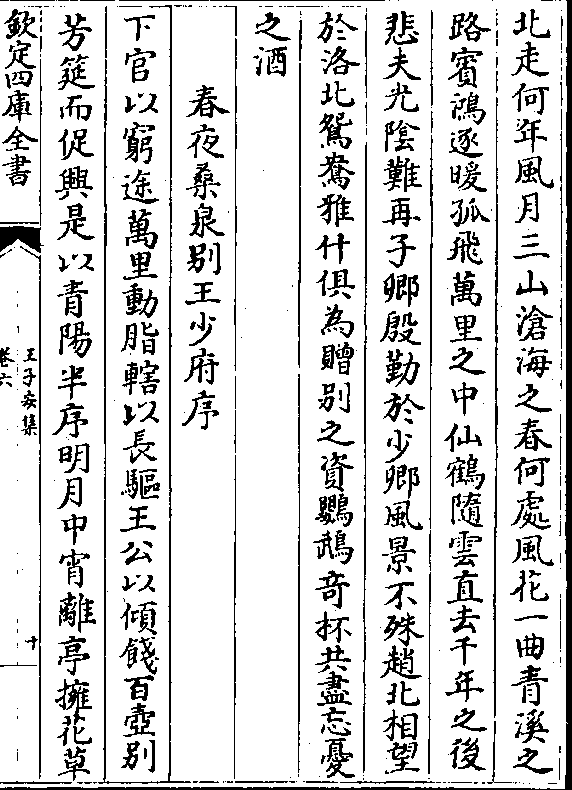 北走何年風月三山滄海之春何處風花一曲青溪之
路賓鴻逐暖孤飛萬里之中仙鶴隨雲直去千年之後
悲夫光陰難再子卿殷勤於少卿風景不殊趙北相望
於洛北鴛鴦雅什俱為贈别之資鸚鵡奇杯共盡忘憂
之酒
春夜桑泉别王少府序
下官以窮途萬里動脂轄以長驅王公以傾餞百壺别
芳筵而促興是以青陽半序明月中宵離亭擁花草
欽定四庫全書
王子安集
卷六
十